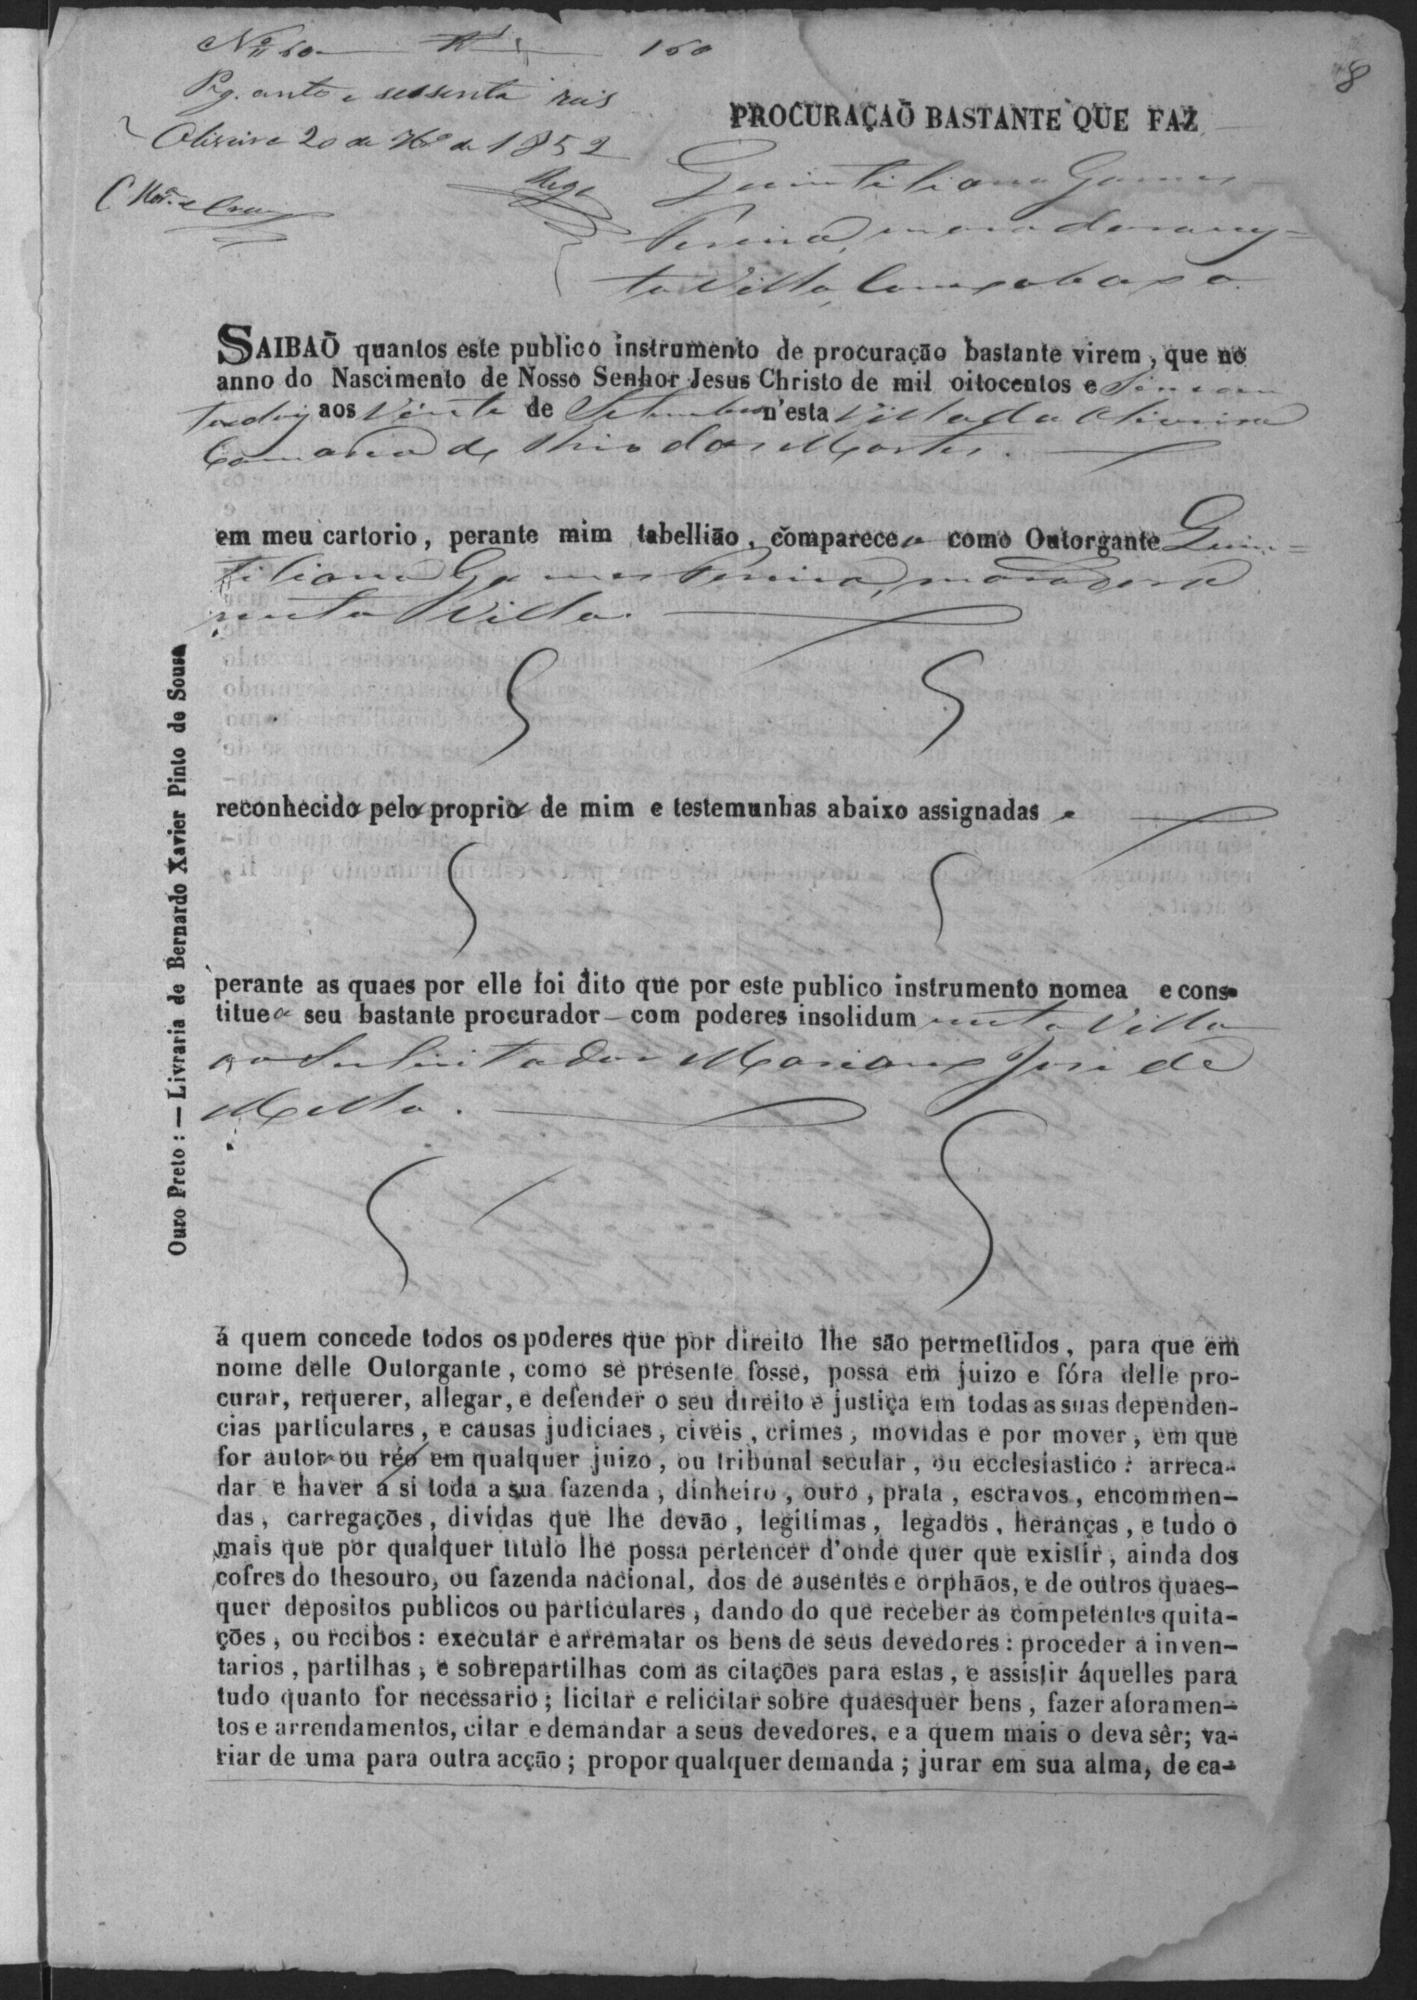 8
Nº 60 Rs 160
Pg. cento e sessenta reis
Oliveira 20 de 7bro de 1852
PROCURAÇAÕ BASTANTE QUE FAZ
Quintiliana Gomes
Pereira, moradora nes=
ta Villa, Como abaixo.
SAIBAÕ quantos este publico instrumento de procuração bastante virem, que no
anno do Nascimento de Nosso Senhor Jesus Christo de mil oitocentos e Sincoen
ta e dois aos Vinte de Setembro n'esta Villa da Oliveira
Comarca do Rio das Mortes.
em meu cartorio, perante mim tabellião, compareceo como Outorgante Quin=
tiliana Gomes Pereira, moradora
nesta Villa.
reconhecida pela propria de mim e testemunhas abaixo assignadas e
perante as quaes por elle foi dito que por este publico instrumento nomea e cons-
titue a seu bastante procurador com poderes insolidum nesta Villa
ao Solicitador Mariano José de
Mello.
á quem concede todos os poderes que por direito lhe são permettidos, para que em
nome delle Outorgante, como se presente fosse, possa em juizo e fóra delle pro-
curar, requerer, allegar, e defender o seu direito e justiça em todas as suas dependen-
cias particulares, e causas judiciaes, civeis, crimes, movidas e por mover, em que
for autor ou réo em qualquer juizo, ou tribunal secular, ou ecclesiastico: arreca-
dar e haver a si toda a sua fazenda, dinheiro, ouro, prata, escravos, encommen-
das, carregações, dividas que lhe devão, legitimas, legados, heranças, e tudo o
mais que por qualquer titulo lhe possa pertencer d'onde quer que existir, ainda dos
cofres do thesouro, ou fazenda nacional, dos de ausentes e orphãos, e de outros quaes-
quer depositos publicos ou particulares, dando do que receber as competentes quita-
ções, ou recibos: executar e arrematar os bens de seus devedores: proceder a inven-
tarios, partilhas, e sobrepartilhas com as citações para estas, e assistir áquelles para
tudo quanto for necessario; licitar e relicitar sobre quaesquer bens, fazer aforamen-
tos e arrendamentos, citar e demandar a seus devedores, e a quem mais o deva sêr; va-
riar de uma para outra acção; propor qualquer demanda; jurar em sua alma, de ca-
Ouro Preto: — Livraria de Bernardo Xavier Pinto de Sousa